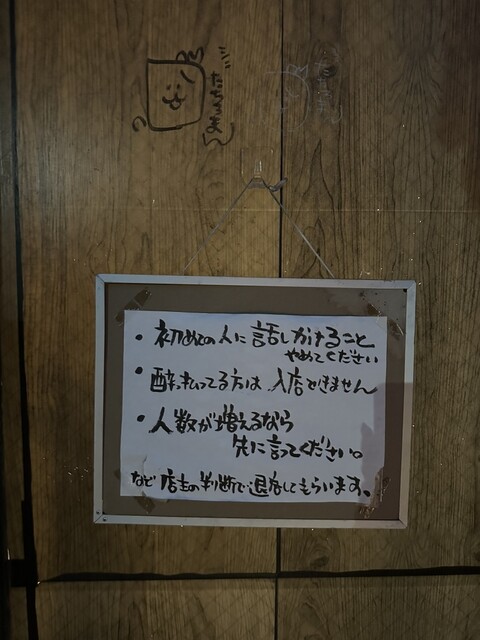 ・初めての人に話しかけること
やめてください
・酔っ払ってる方は入店できません
・人数が増えるなら
先に言ってください。
など店主の判断で退店してもらいます。